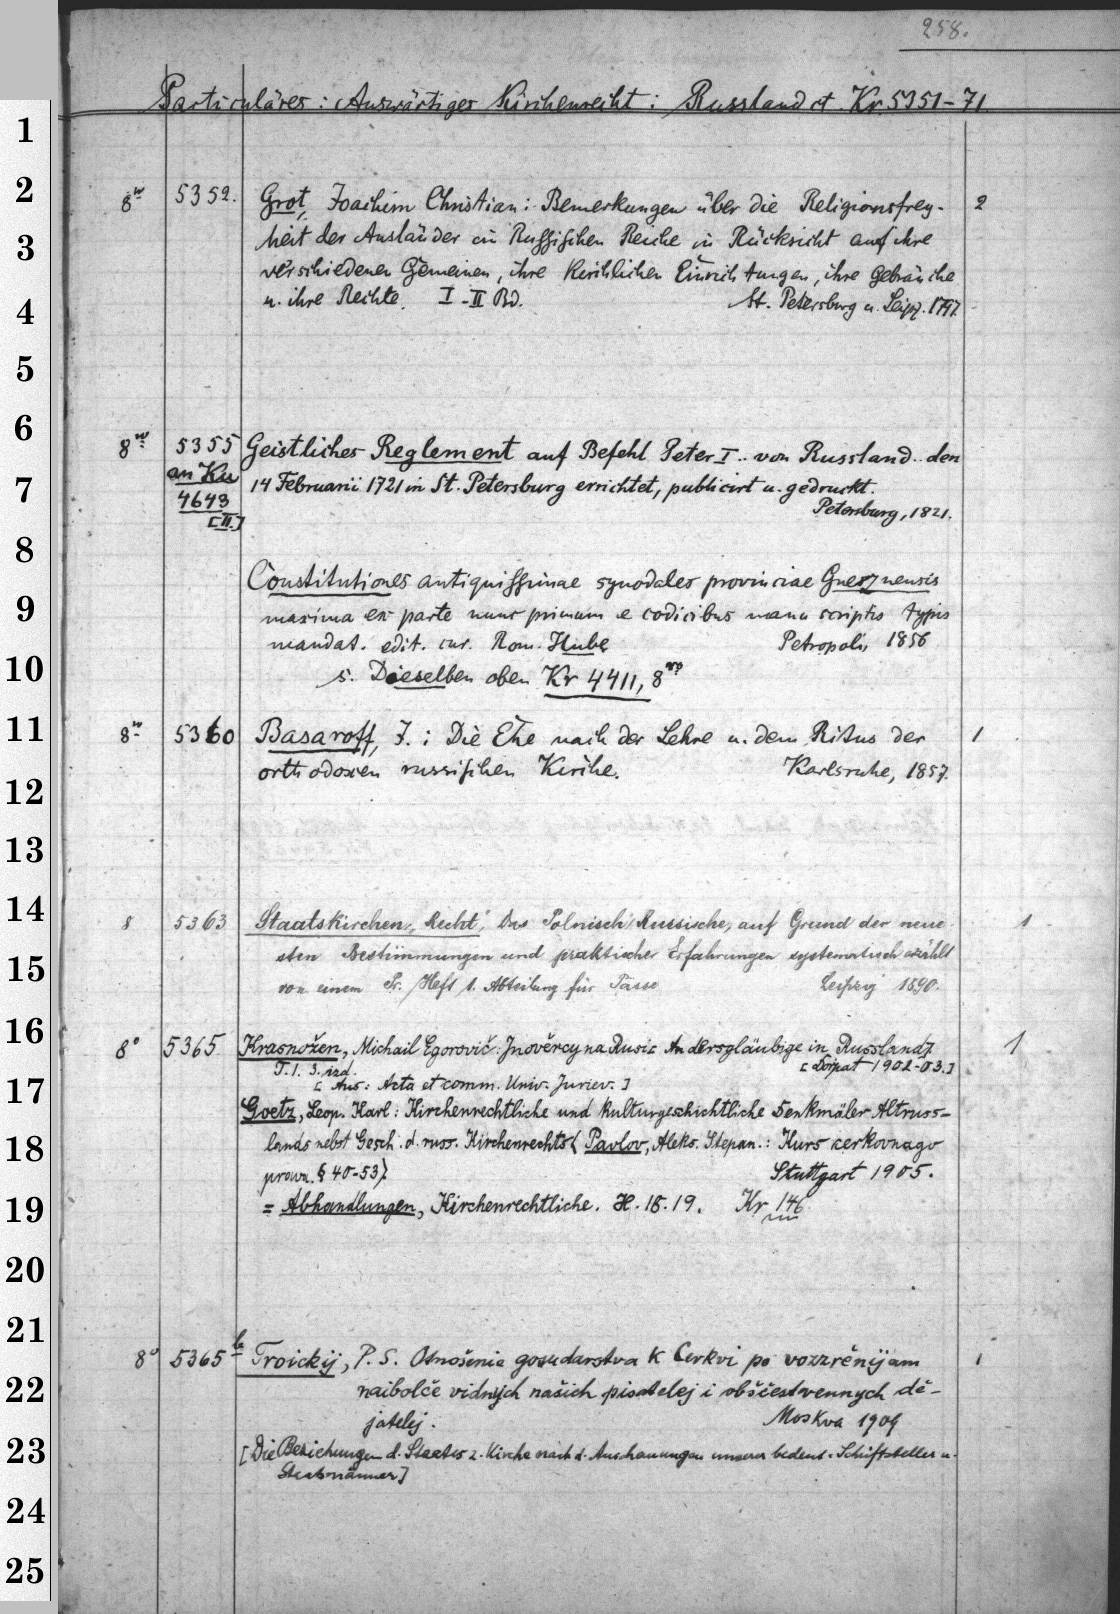 258.
Particuläres: Auswärtiges Kirchenrecht: Russland ct. Kr. 5351-71.
1
2
3
4
5
6
7
8
9
10
11
12
13
14
15
16
17
18
19
20
21
22
23
24
25
8° 5352. Grot, Joachim Christian: Bemerkungen über die Religionsfrey- 2
heit der Ausländer in Russischen Reiche in Rücksicht auf ihre
verschiedenen Gemeinen, ihre kirchlichen Einrichtungen, ihre Gebräuche
u. ihre Rechte. I-II Bd. St. Petersburg u. Leipz. 1797.
8° 5355 Geistliches Reglement auf Befehl Peter I. von Russland den
an Ku 14 Februarii 1721 in St. Petersburg errichtet, publicirt u. gedruckt.
4643 Petersburg, 1821.
[II.]
Constitutiones antiquissimae synodales provinciae Gneznensis
maxima ex parte nunc primum e codicibus manu scriptis typis
mandat. edit. cur. Rom. Hube Petropoli, 1856
s. Dieselben oben Kr 4411, 8vo
8° 5360 Basaroff, J.: Die Ehe nach der Lehre u. dem Ritus der 1
orthodoxen russischen Kirche. Karlsruhe, 1857.
8 5363 Staatskirchen, Recht, Das Polnisch Russische, auf Grund der neue- 1
sten Bestimmungen und praktischer Erfahrungen systematisch erzählt
von einem Heft 1. Abteilung für Leipzig 1890.
8° 5365 Krasnožen, Michail Egorovič: Inověrcy na Rusi [Andersgläubige in Russland] 1
T. 1. 3. izd. [Dorpat 1902-03.]
[Aus: Acta et comm. Univ. Juriev.]
Goetz, Leop. Karl: Kirchenrechtliche und kulturgeschichtliche Denkmäler Altruss-
lands nebst Gesch. d. russ. Kirchenrechts (Pavlov, Aleks. Stepan.: Kurs cerkovnago
prava. § 40-53) Stuttgart 1905.
= Abhandlungen, Kirchenrechtliche. H. 18.19. Kr 146
8° 5365b Troickij, P. S. Otnošenie gosudarstva k Cerkvi po vozzrěnijam 1
naibolče vidnych našich pisatelej i obščestvennych dě-
jatelej. Moskva 1909
[Die Beziehungen d. Staates z. Kirche nach d. Anschauungen unserer bedeut. Schriftsteller u.
Staatsmänner]